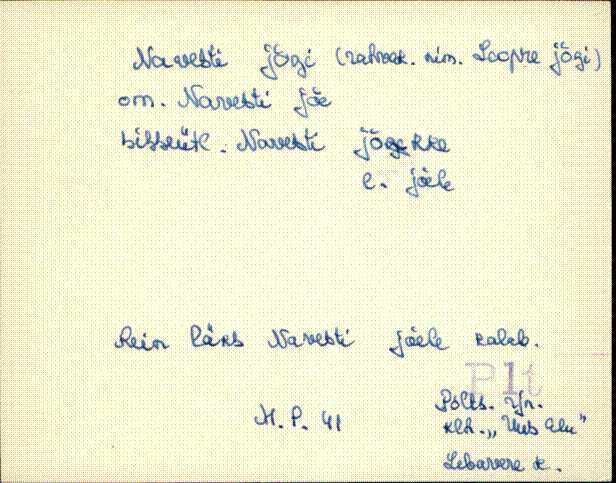 Navesti jõgi (rahvak. nim. Loopre jõgi)
om. Navesti jõe
sisseütl. Navesti jõgekke
e. jõele
Rein läks Navesti jõele kalale.
Plt
Põlts. rjn.
H. P. 41 klh. „Uus Elu"
Lebavere k.